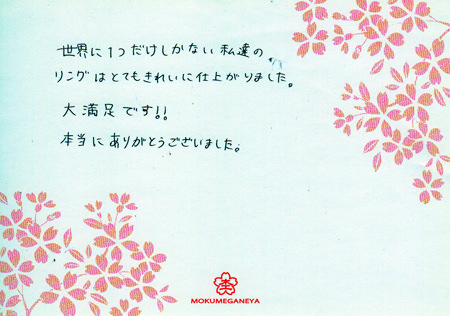 世界に1つだけしかない私達の
リングはとてもきれいに仕上がりました。
大満足です!!
本当にありがとうございました。
MOKUMEGANEYA